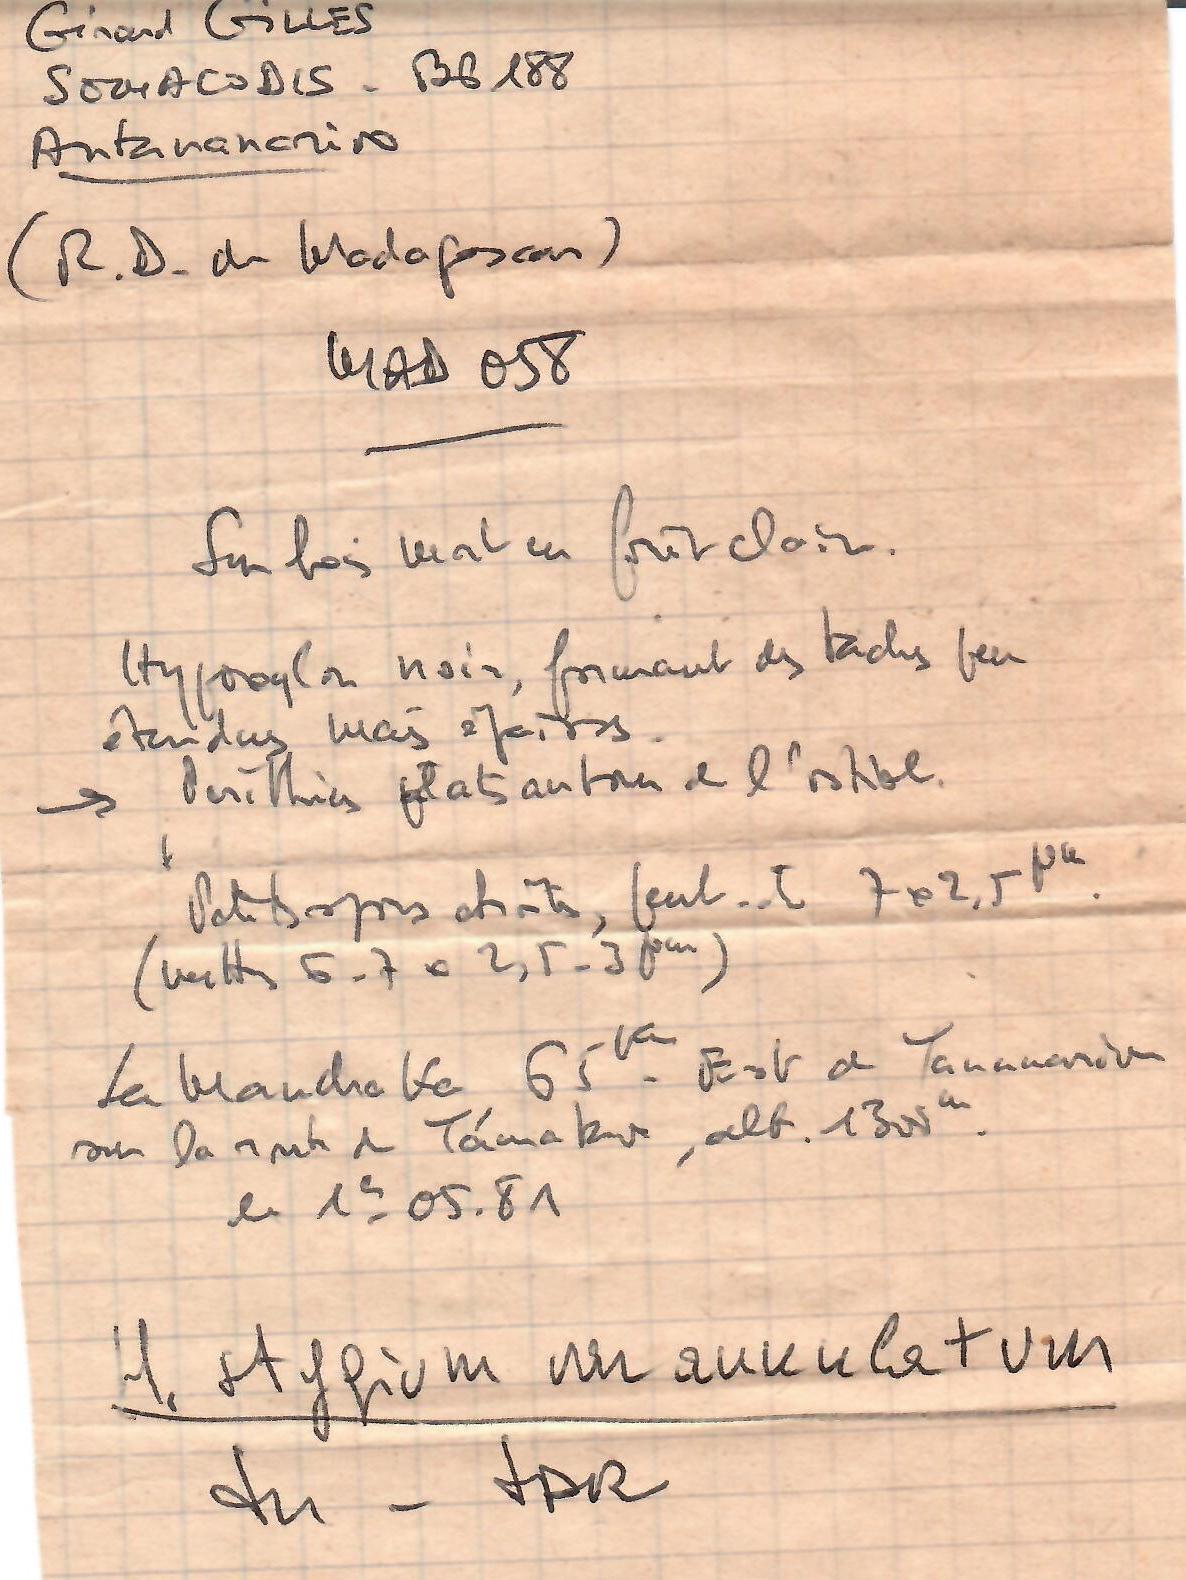 Gérard GILLES
SOMACODIS - BP 188
Antananarivo
(R.D. de Madagascar)
MAD 058
Sur bois mort en forêt claire.
Hypoxylon noir, formant des taches peu
étendues mais épaisses.
→ Périthèces plats autour de l'ostiole.
Petites spores droites, 7 x 2,5 µm.
(6-7 x 2,5-3 µm)
La Mandraka 65 km Est de Tananarive
sur la route de Tamatave, alt. 1300 m.
le 1er 05.81
H. stygium var annulatum